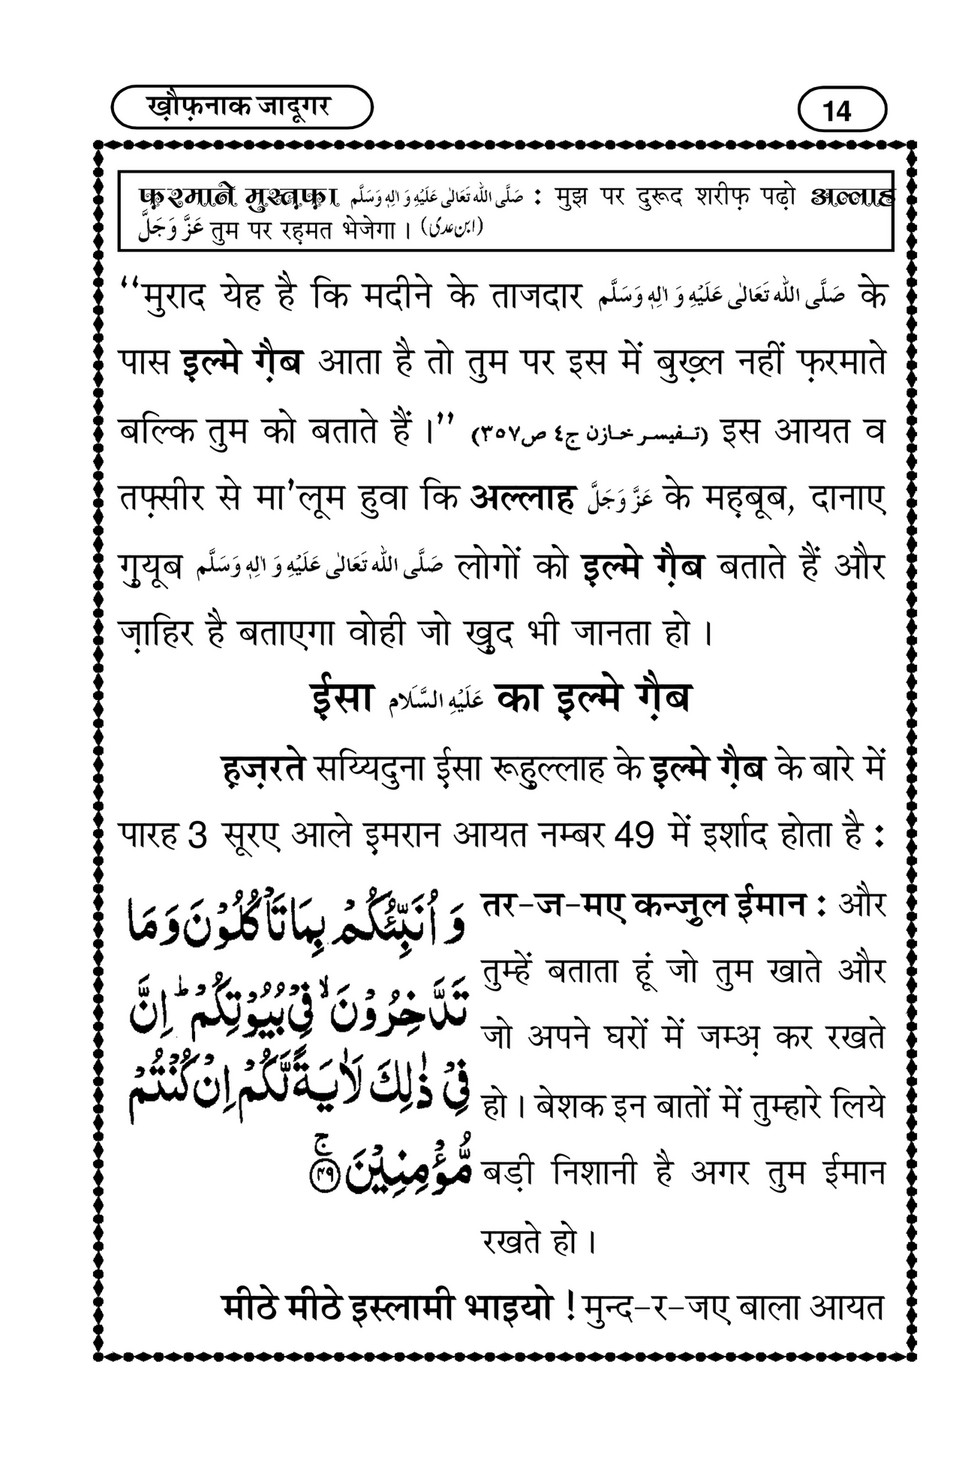 ख़ौफ़नाक जादूगर
14
फ़रमाने मुस्तफ़ा صَلَّی اللہ تَعَالٰی عَلَیْہِ وَ اٰلِہٖ وَسَلَّم : मुझ पर दुरूद शरीफ़ पढ़ो अल्लाह
عَزَّ وَجَلَّ तुम पर रह़मत भेजेगा । (ابن عدی)
‘‘मुराद येह है कि मदीने के ताजदार صَلَّی اللہ تَعَالٰی عَلَیْہِ وَ اٰلِہٖ وَسَلَّم के
पास इल्मे ग़ैब आता है तो तुम पर इस में बुख़्ल नहीं फ़रमाते
बल्कि तुम को बताते हैं ।’’ (تفسیر خازن ج٤ ص٣٥٧) इस आयत व
तफ़्सीर से मा’लूम हुवा कि अल्लाह عَزَّ وَجَلَّ के मह़बूब, दानाए
ग़ुयूब صَلَّی اللہ تَعَالٰی عَلَیْہِ وَ اٰلِہٖ وَسَلَّم लोगों को इल्मे ग़ैब बताते हैं और
ज़ाहिर है बताएगा वोही जो ख़ुद भी जानता हो ।
ईसा عَلَیْہِ السَّلَام का इल्मे ग़ैब
ह़ज़रते सय्यिदुना ईसा रूहुल्लाह के इल्मे ग़ैब के बारे में
पारह 3 सूरए आले इमरान आयत नम्बर 49 में इर्शाद होता है :
وَ اُنَبِّئُكُمْ بِمَا تَاْكُلُوْنَ وَ مَا
تَدَّخِرُوْنَ ۙ فِیْ بُیُوْتِكُمْ ؕ اِنَّ
فِیْ ذٰلِكَ لَاٰیَةً لَّكُمْ اِنْ كُنْتُمْ
مُّؤْمِنِیْنَ ۚ﴿۴۹﴾
तर-ज-मए कन्ज़ुल ईमान : और
तुम्हें बताता हूं जो तुम खाते और
जो अपने घरों में जम्अ़ कर रखते
हो । बेशक इन बातों में तुम्हारे लिये
बड़ी निशानी है अगर तुम ईमान
रखते हो ।
मीठे मीठे इस्लामी भाइयो ! मुन्द-र-जए बाला आयत